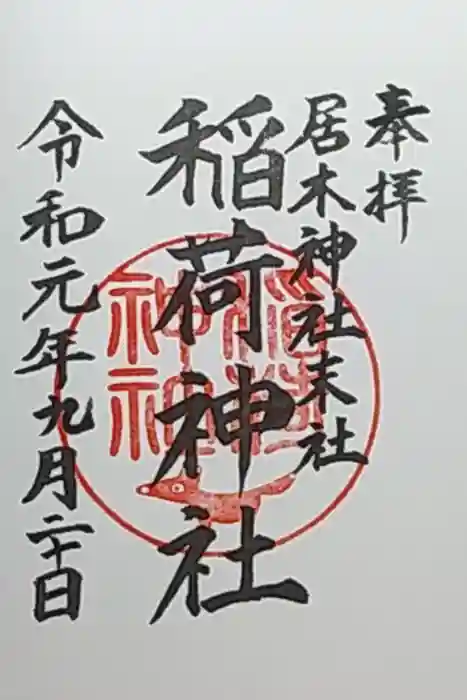 奉拝
居木神社末社
稲荷神社
令和元年九月二十日
稲荷
神社